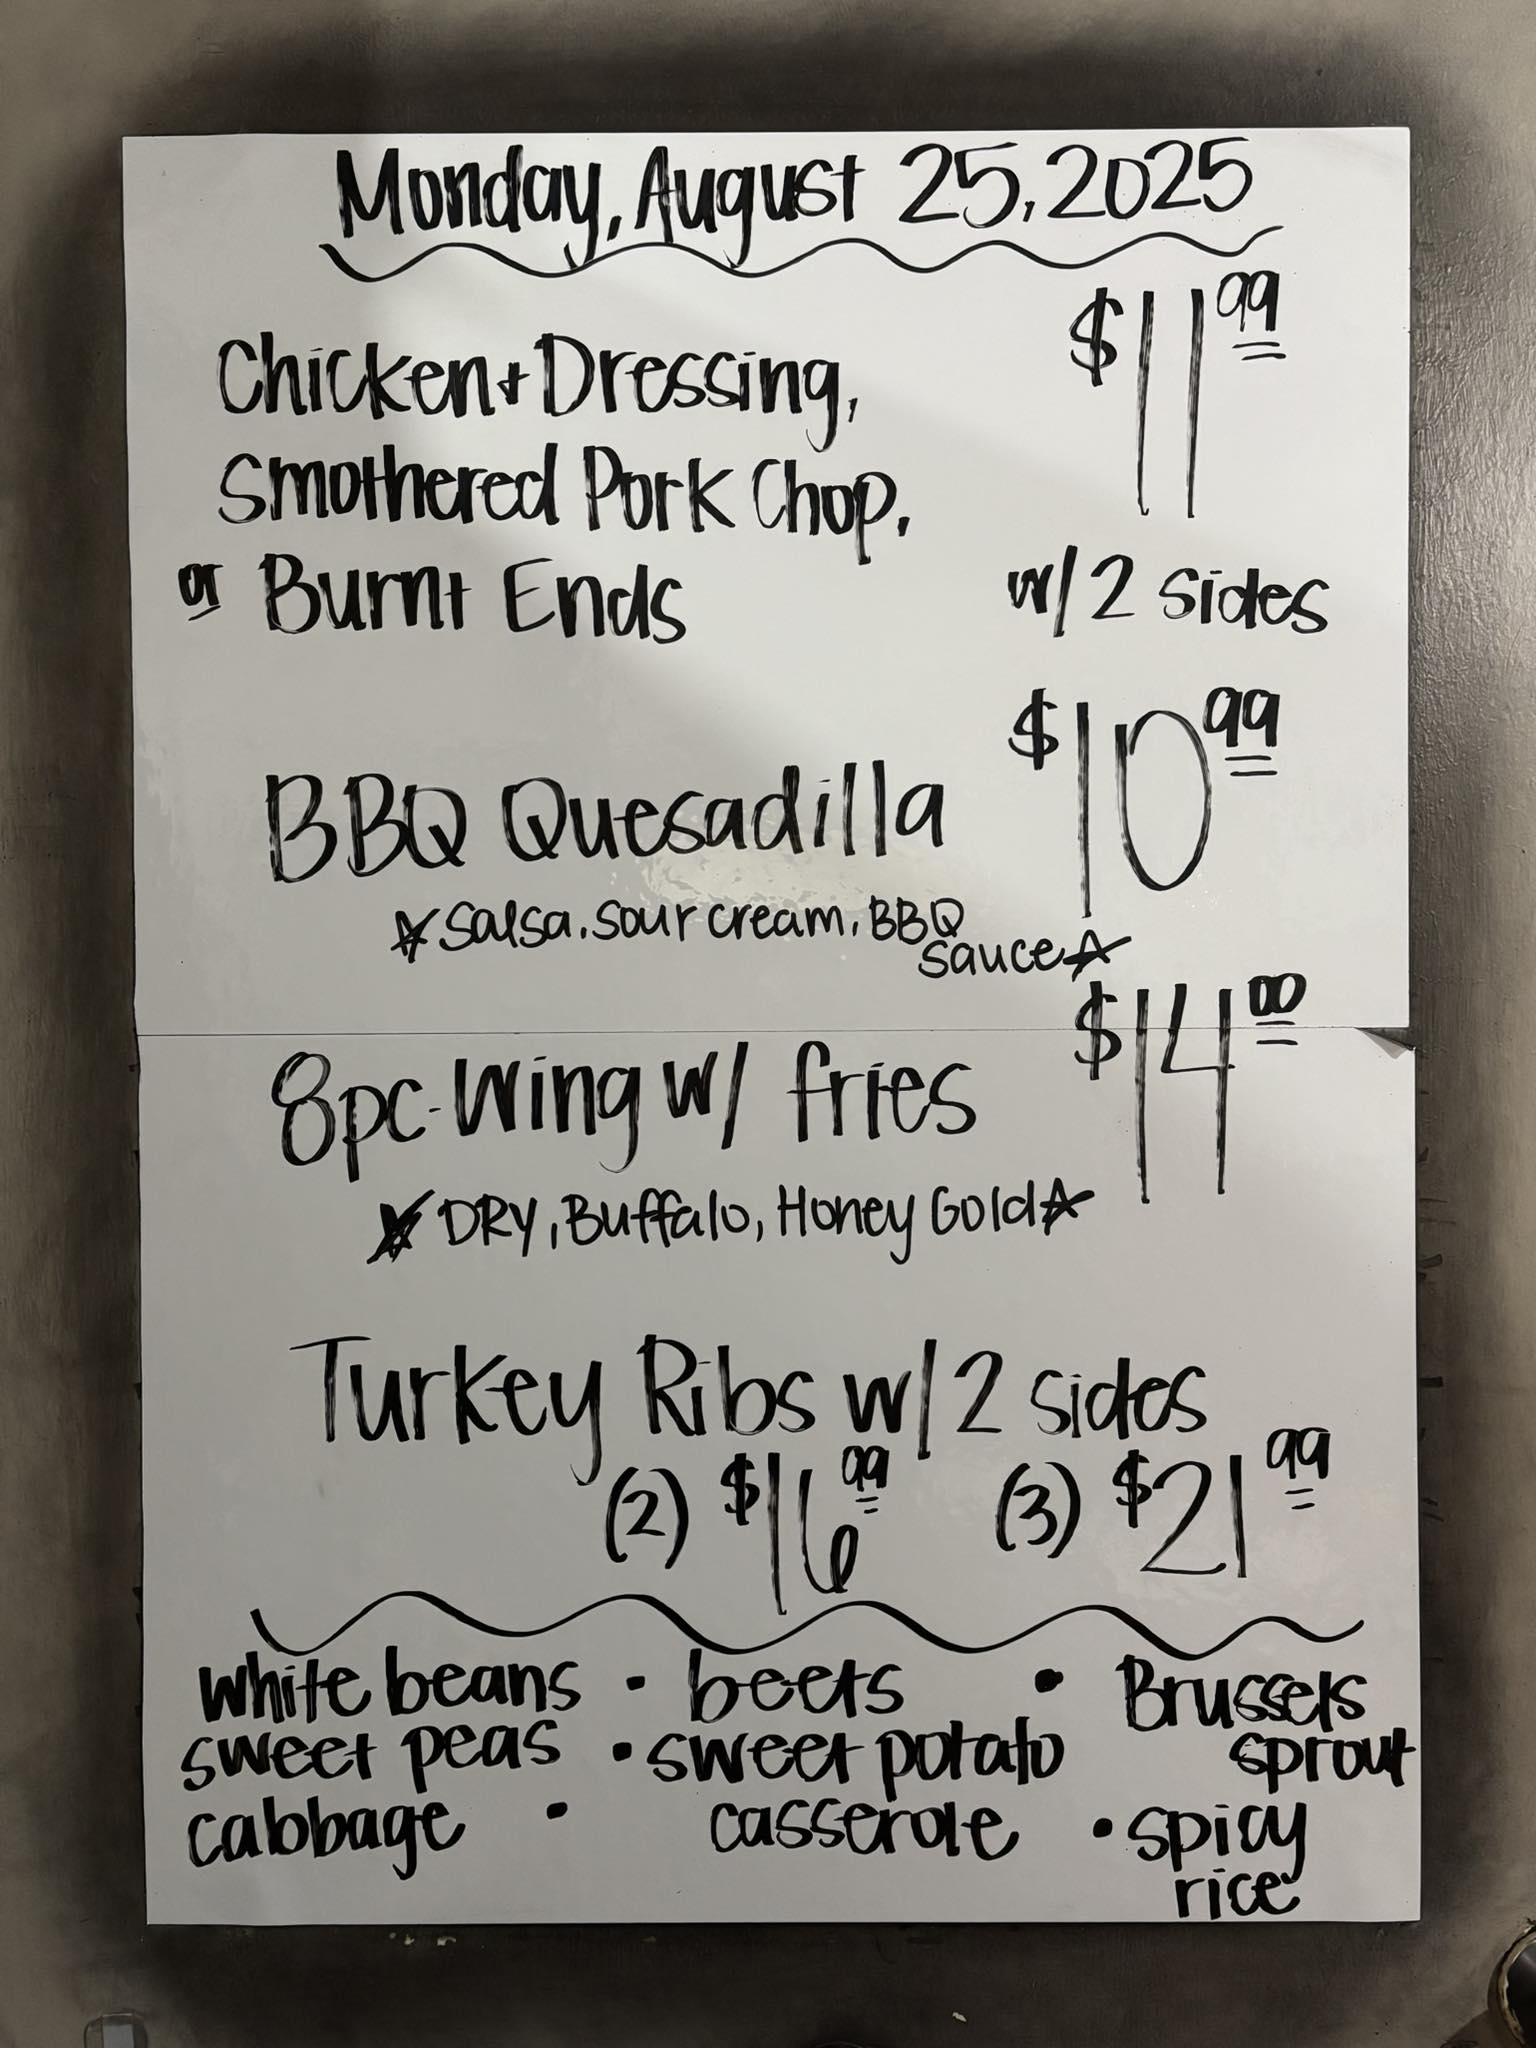 Monday, August 25, 2025
$11.99
Chicken + Dressing,
Smothered Pork Chop,
or Burnt Ends w/ 2 sides
$10.99
BBQ Quesadilla
☆ Salsa, Sour cream, BBQ
sauce ☆
$14.00
8pc. Wing w/ fries
☆ DRY, Buffalo, Honey Gold ☆
Turkey Ribs w/ 2 sides
(2) $16.99 (3) $21.99
white beans • beets • Brussels
sweet peas • sweet potato sprout
cabbage • casserole • spicy
rice